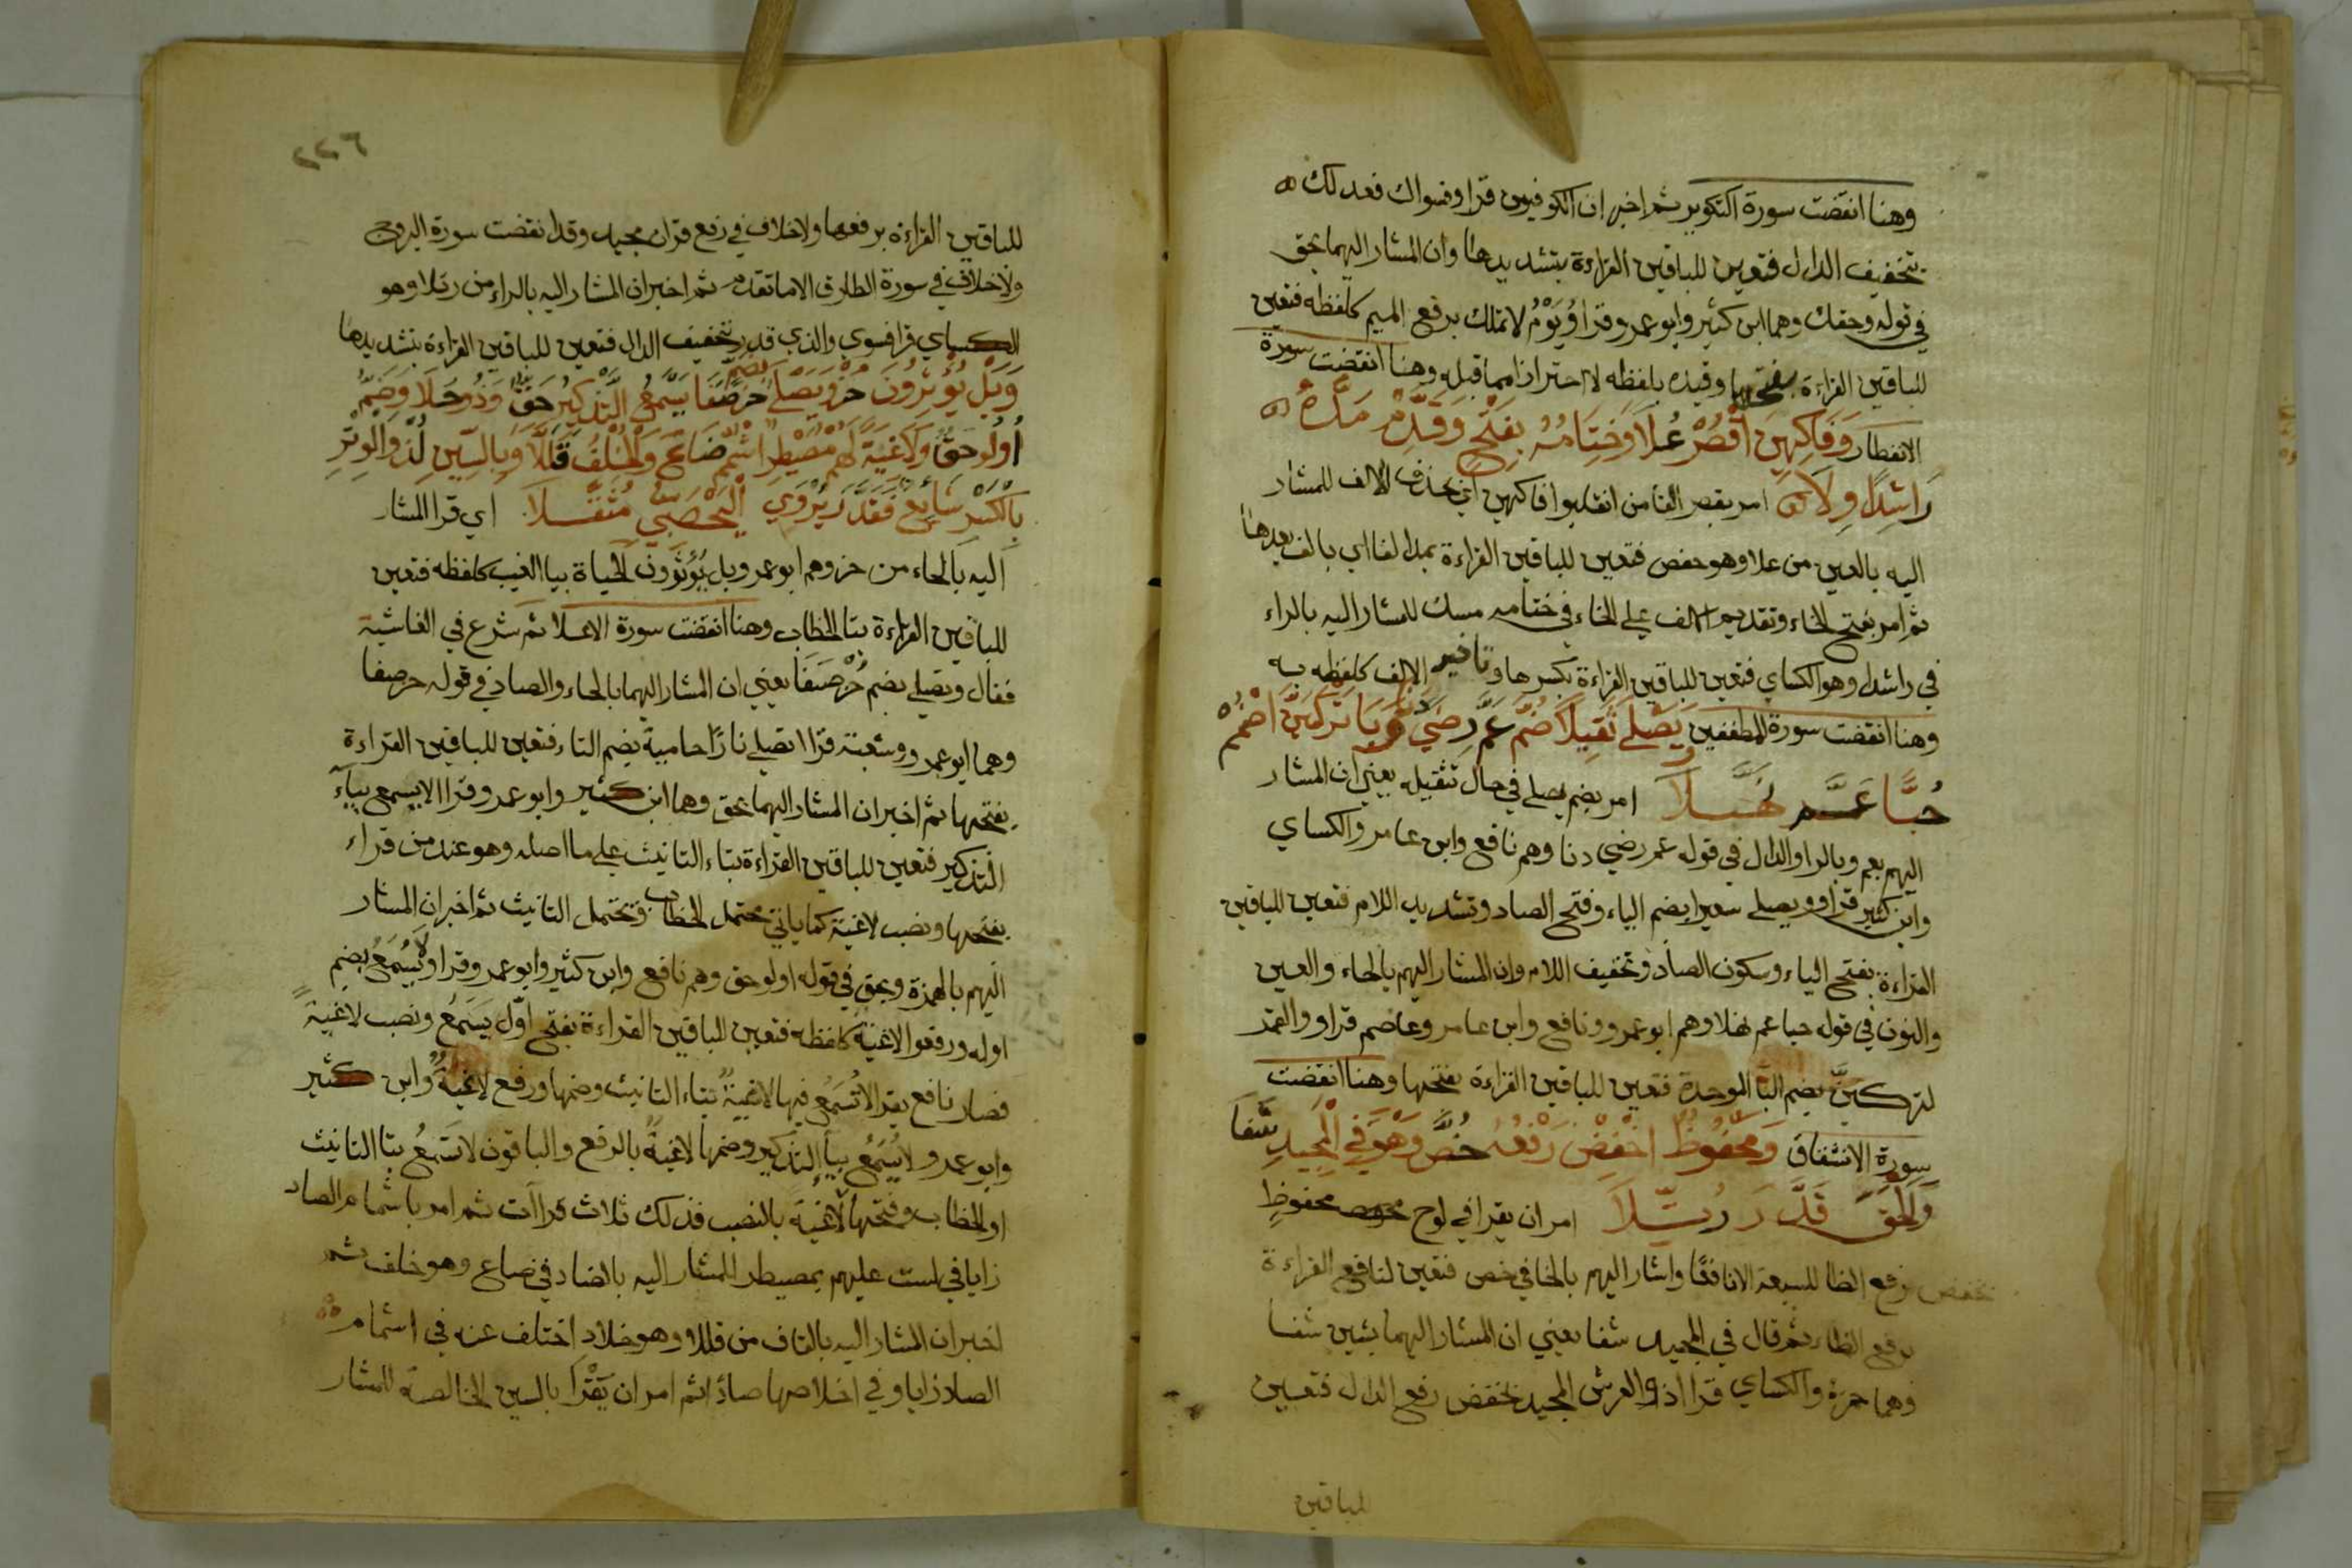 وهنا انقضت سورة التكوير ثم اخبر ان الكوفيون قرا وفسواك فعدلك
بتخفيف الدال فتعين للباقين القراءة بتشديدها وان المشار اليهما بحق
في قوله وحقك وهما ابن كثير وابو عمرو قرا وَيَوْمُ لا تملك برفع الميم كلفظه فتعين
للباقين القراءة بفتحها وقيده بلفظه لا احترازا مما قبله وهنا انقضت سورة
الانفطار وَفَاكِهِينَ اُقْصُرْ عُلاً وَخِتَامُهُ بِفَتْحٍ وَقَدِّمْ مَدَّهُ
رَاشِدًا وِلاَ امر بقصر الفا من انقلبوا فاكهين اي بحذف الالف للمشار
اليه بالعين من علا وهو حفص فتعين للباقين القراءة بمد الفا اي بالف بعدها
ثم امر بفتح الخاء وتقديم الالف على الخاء في ختامه مسك للمشار اليه بالراء
في راشدا وهو الكساي فتعين للباقين القراءة بكسرها وتاخير الالف كلفظه به
وهنا انقضت سورة المطففين يُصَلَّى ثَقِيلاً ضُمَّ عَمَّ رِضىً دَنَا وَبَا تَرْكَبَنَّ اضْمُمْ
حُبًّا عَمَّ نُهَّلاَ امر بضم يصلى في حال تثقيله يعني ان المشار
اليهم بعم وبالرا والدال في قوله عم رضى دنا وهم نافع وابن عامر والكساي
وابن كثير قراوا ويصلى سعيرا بضم الياء وفتح الصاد وتشديد اللام فتعين للباقين
القراءة بفتح الياء وسكون الصاد وتخفيف اللام وان المشار اليهم بالحاء والعين
والنون في قوله حبا عم نهلا وهم ابو عمرو ونافع وابن عامر وعاصم قراوا والقمر
لتركبنَّ بضم البا الموحدة فتعين للباقين القراءة بفتحها وهنا انقضت
سورة الانشقاق وَمَحْفُوظٌ اخْفِضْ رَفْعَهُ خُصَّ وَهْوَ فِي الْمَجِيدِ شَفَا
وَالْخِفُّ قَدَّرَ رُتِّلاَ امر ان يقرا في لوح محفوظٍ
بخفض رفع الظا للسبعة الا نافعًا واشار اليهم بالخا في خص فتعين لنافع القراءة
برفع الظاء ثم قال في المجيد شفا يعني ان المشار اليهما بشين شفا
وهما حمزة والكساي قرا ا ذو العرش المجيد بخفض رفع الدال فتعين
للباقين
٢٢٦
للباقين القراءة برفعها ولا خلاف في رفع قران مجيد وقد انقضت سورة البروج
ولا خلاف في سورة الطارق الا ما تقدم ثم اخبر ان المشار اليه بالراء من رتلا وهو
الكساي قرا فسوى والذي قدر بتخفيف الدال فتعين للباقين القراءة بتشديدها
وَبَلْ يُؤْثِرُونَ حُزْ وَيَصْلَى بضم حُزْ صَفَا يُسْمَعُ التَّذْكِيرُ حَقٌّ وَذُو جَلاَ وَضَمَّ
أُولُو حَقٍّ وَلاَغِيَةٌ لَهُمْ مُصَيْطِرٍ اشْمِمْ ضَاعَ وَالْخُلْفُ قُلِّلاَ وَبِالسِّينِ لُذْ وَالْوِتْرِ
بِالْكَسْرِ شَايِعٌ فَقَدَّرَ يَرْوِي الْيَحْصَبِيُّ مُثَقَّلاَ اي قرا المشار
اليه بالحاء من حز وهم ابو عمرو بل يُؤْثرون الحياة بيا الغيب كلفظه فتعين
للباقين القراءة بتا الخطاب وهنا انقضت سورة الاعلا ثم شرع في الغاشية
فقال وتصلى بضم حُزْ صَفَا يعني ان المشار اليهما بالحاء والصاد في قوله حز صفا
وهما ابو عمرو وشعبة قرا ا تصلى نارًا حامية بضم التاء فتعين للباقين القراءة
بفتحها ثم اخبر ان المشار اليهما بحق وهما ابن كثير وابو عمرو قرا ا لا يسمع بياء
التذكير فتعين للباقين القراءة بتاء التانيث على ما اصله وهو عند من قراء
بفتحها ونصب لاغية كما ياتي محتمل الخطاب وتحتمل التانيث ثم اخبر ان المشار
اليهم بالهمزة وبحق في قوله اولو حق وهم نافع وابن كثير وابو عمرو قراوا لا يُسْمَعُ بضم
اوله ورفعوا لاغية كلفظه فتعين للباقين القراءة بفتح اوّل يَسْمَعُ ونصب لاغيةً
فصار نافع يقرا لا تُسْمَعُ فيها لاغيةٌ بتاء التانيث وضمها ورفع لاغيةٌ وابن كثير
وابو عمرو لا يُسْمَعُ بيا التذكير وضمها لاغيةٌ بالرفع والباقون لا تَسْمَعُ بتا التانيث
او الخطاب وفتحها لاغيةً بالنصب فذلك ثلاث قراآت ثم امر باشمام الصاد
زايا في لست عليهم بمصيطر للمشار اليه بالضاد في ضاع وهو خلف ثم
اخبر ان المشار اليه بالقاف من قللا وهو خلاد اختلف عنه في اشمام
الصاد زايا وفي اخلاصها صادًا ثم امر ان يَقْرَا بالسين الخالصة للمشار